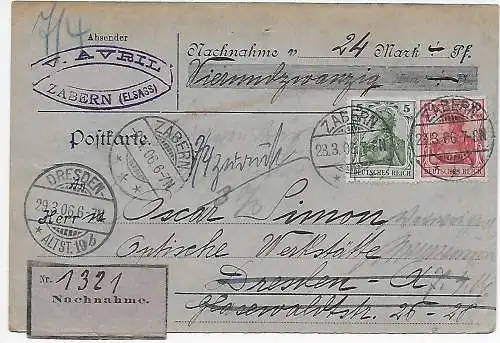 7/4
Absender
V. AVRIL
ZABERN (ELSASS)
Nachnahme v 24 Mark ÷ Pf.
Vierundzwanzig
Postkarte.
ZABERN
06.6-7N
5
DEUTSCHES REICH
ZABERN
28.3.06.7-8N
DEUTSCHES REICH
zurück
DRESDEN-
29.3.06.6-7N
ALTST. 10 b
Herrn Oscar Simon
Optische Werkstätte
Dresden - A
Glasewaldtstr. 26 - 28
Nr. 1321
Nachnahme.